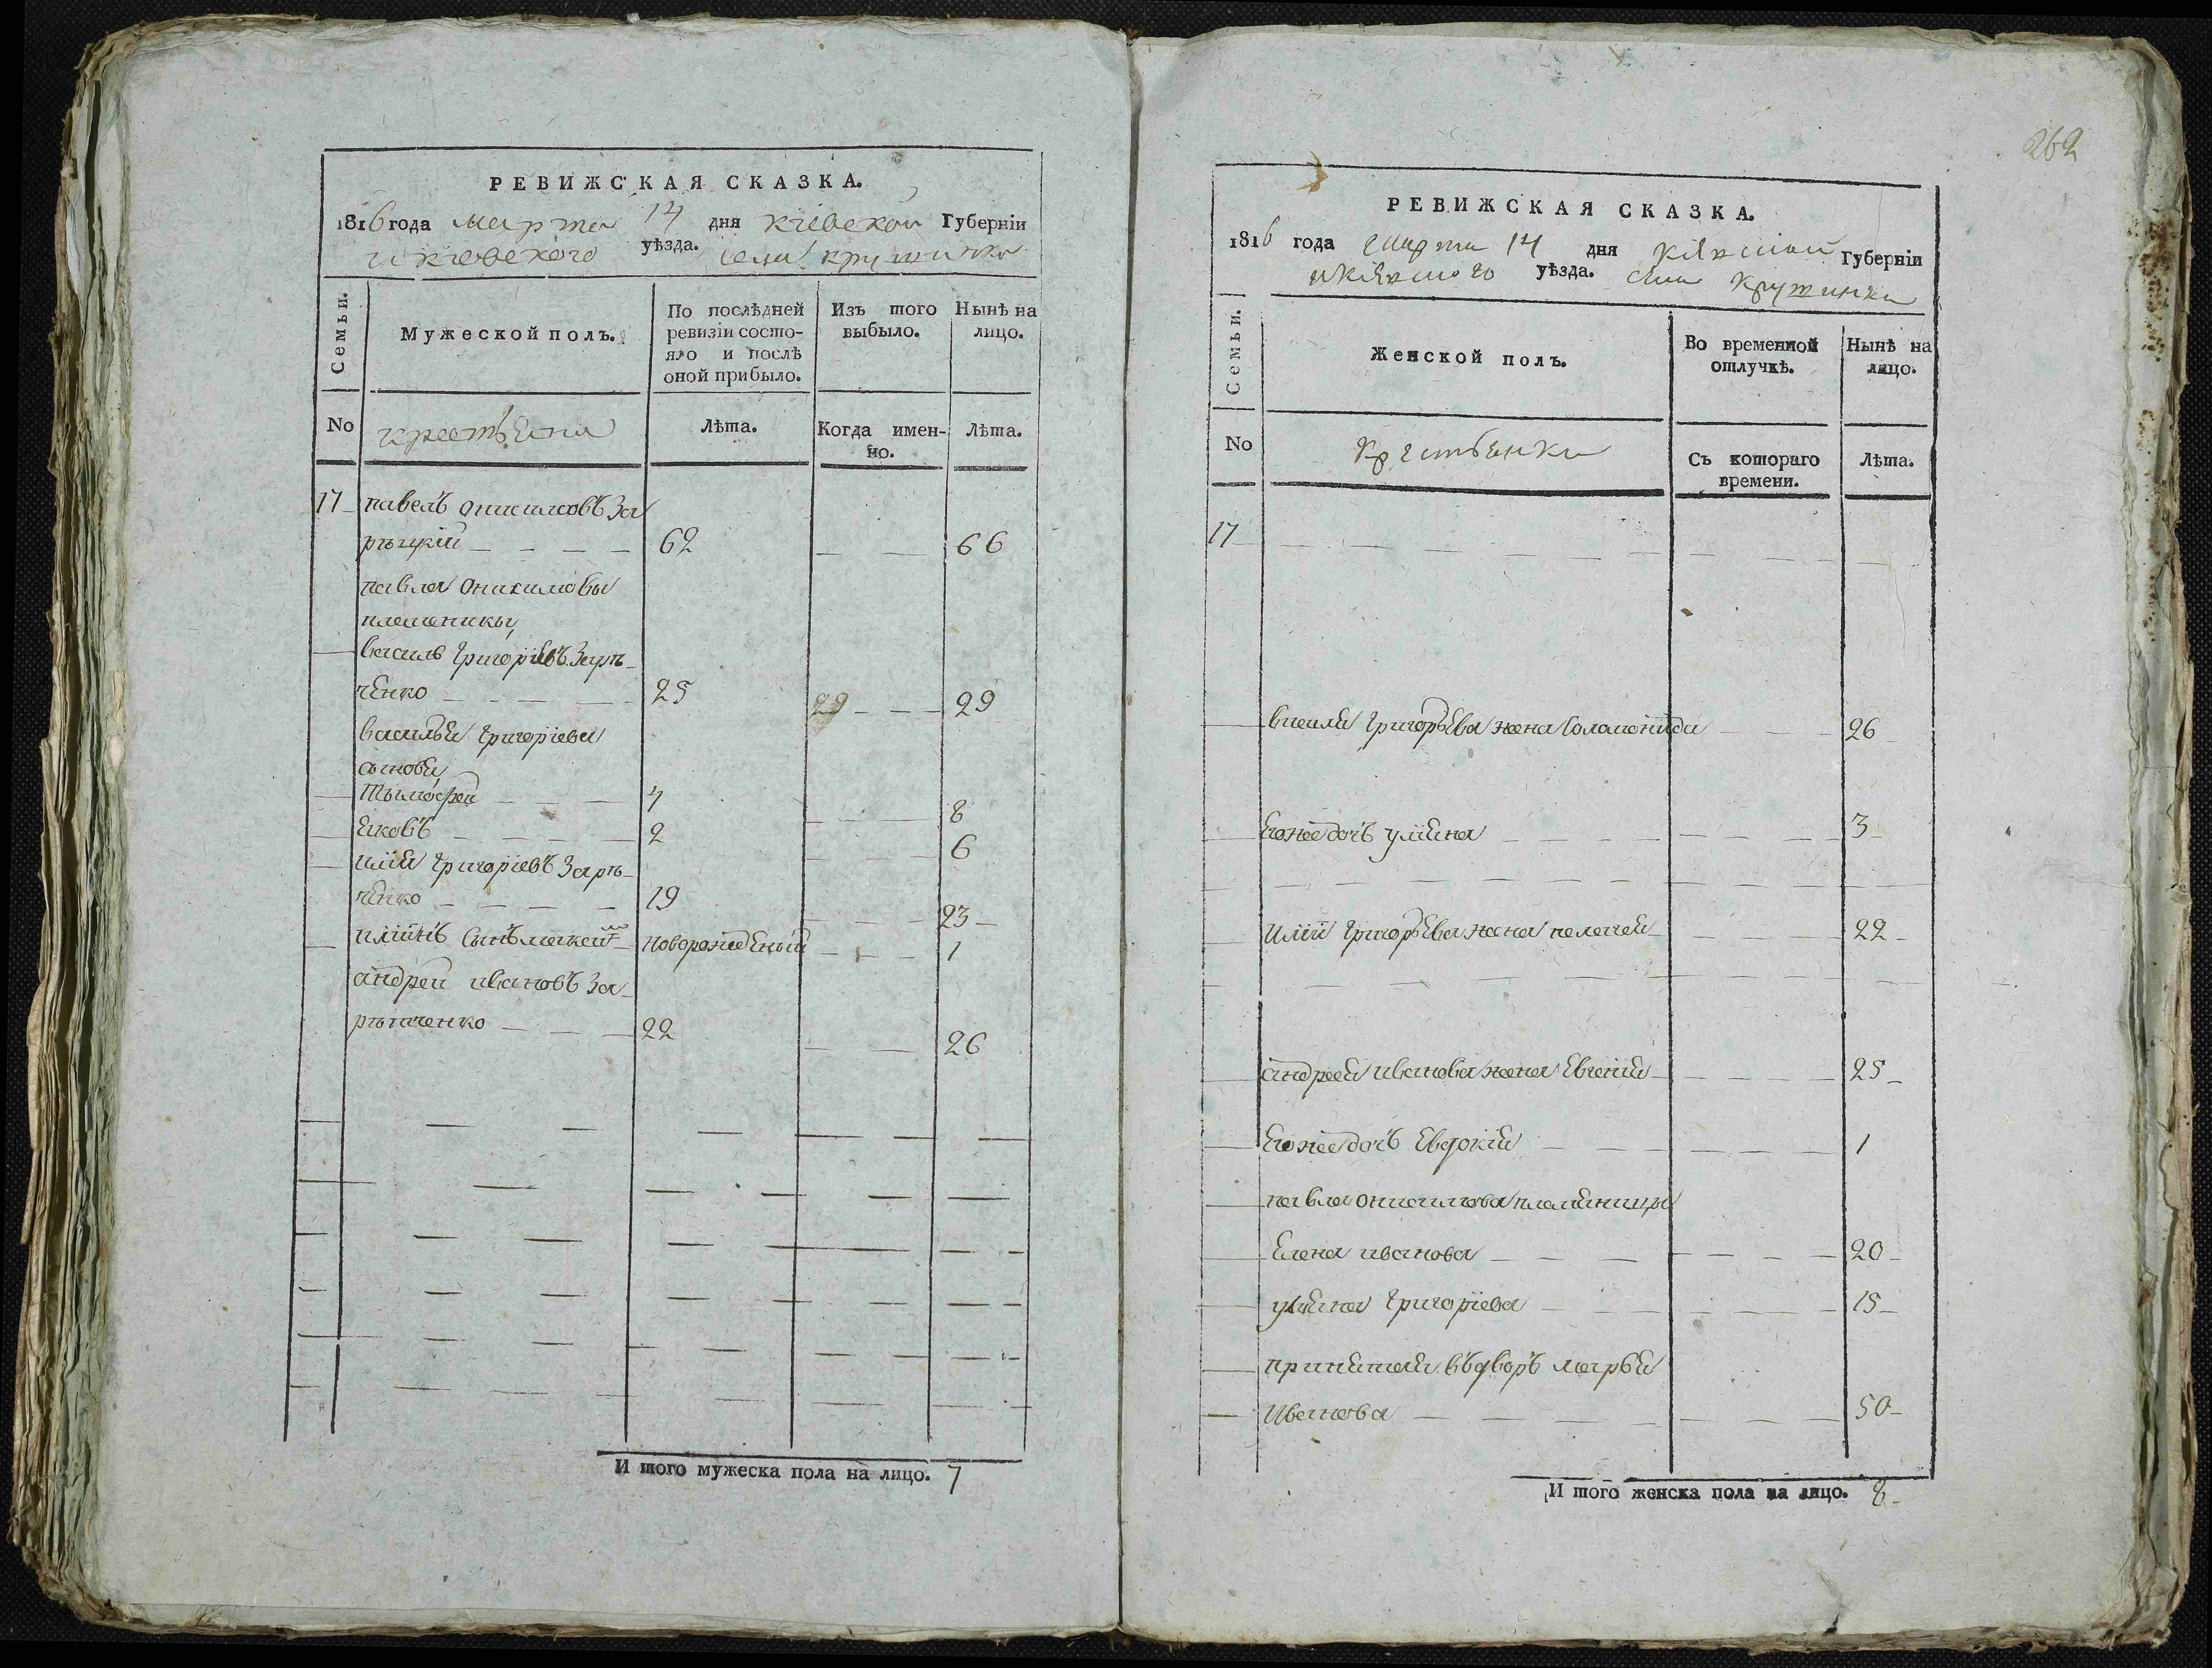 РЕВИЖСКАЯ СКАЗКА.
1816 года марта 14 дня киевской Губерніи
и киевского уѣзда. села крушинки
Семьи.
Мужеской полъ.
По послѣдней ревизіи состояло и послѣ оной прибыло.
Изъ того выбыло.
Нынѣ на лицо.
No
крестьяни
Лѣта.
Когда именно.
Лѣта.
17 павелъ онисимовъ За
рѣцкій 62 66
павла онисимовы
племеники
василь григоріевъ Зарѣ
ченко 25 29 29
василья григоріева
сыновя
Тымофей 4 8
яковъ 2 6
илія григоріевъ Зарѣ
ченко 19 23
иліинъ сынъ новорожденый 1
андрей ивановъ За
рѣченко 22 26
И того мужеска пола на лицо. 7
262
РЕВИЖСКАЯ СКАЗКА.
1816 года марта 14 дня Губерніи
уѣзда. села крушинки
Семьи.
Женской полъ.
Во временной отлучкѣ.
Нынѣ на лицо.
No
Крестьянки
Съ котораго времени.
Лѣта.
17
василя григорьева жена Соломонида 26
его же дочъ уліяна 3
иліи григорьева жена пелагея 22
андрея иванова жена Евгенія 25
его же дочъ Евдокія 1
павла онисимова племяницы
Елена иванова 20
уліяна григоріева 15
принятая въ дворъ марья
Иванова 50
И того женска пола на лицо. 8